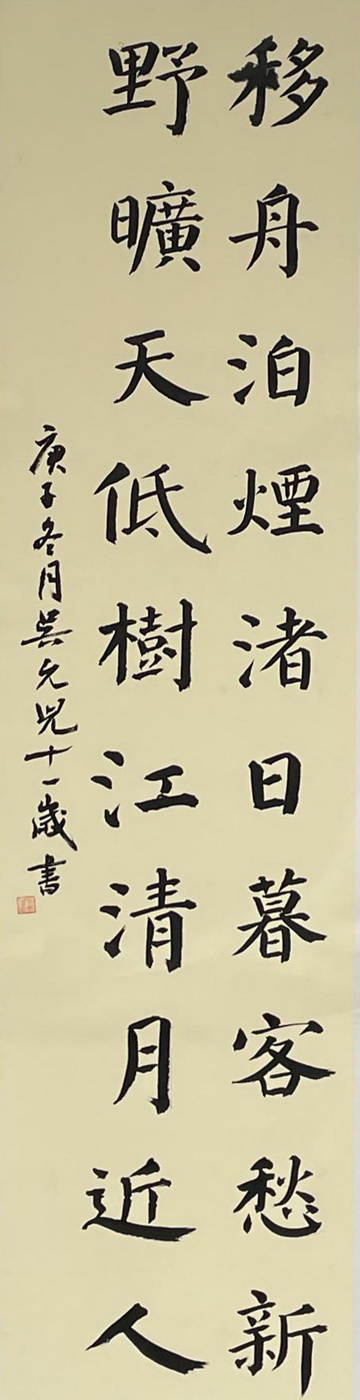 移舟泊煙渚日暮客愁新
野曠天低樹江清月近人
庚子冬月吳允兒十一歲書